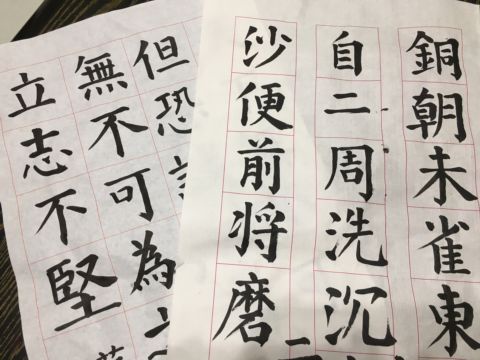 銅朝未雀東
自二周洗沉
沙便前将磨
但恐
無不可為
立志不堅